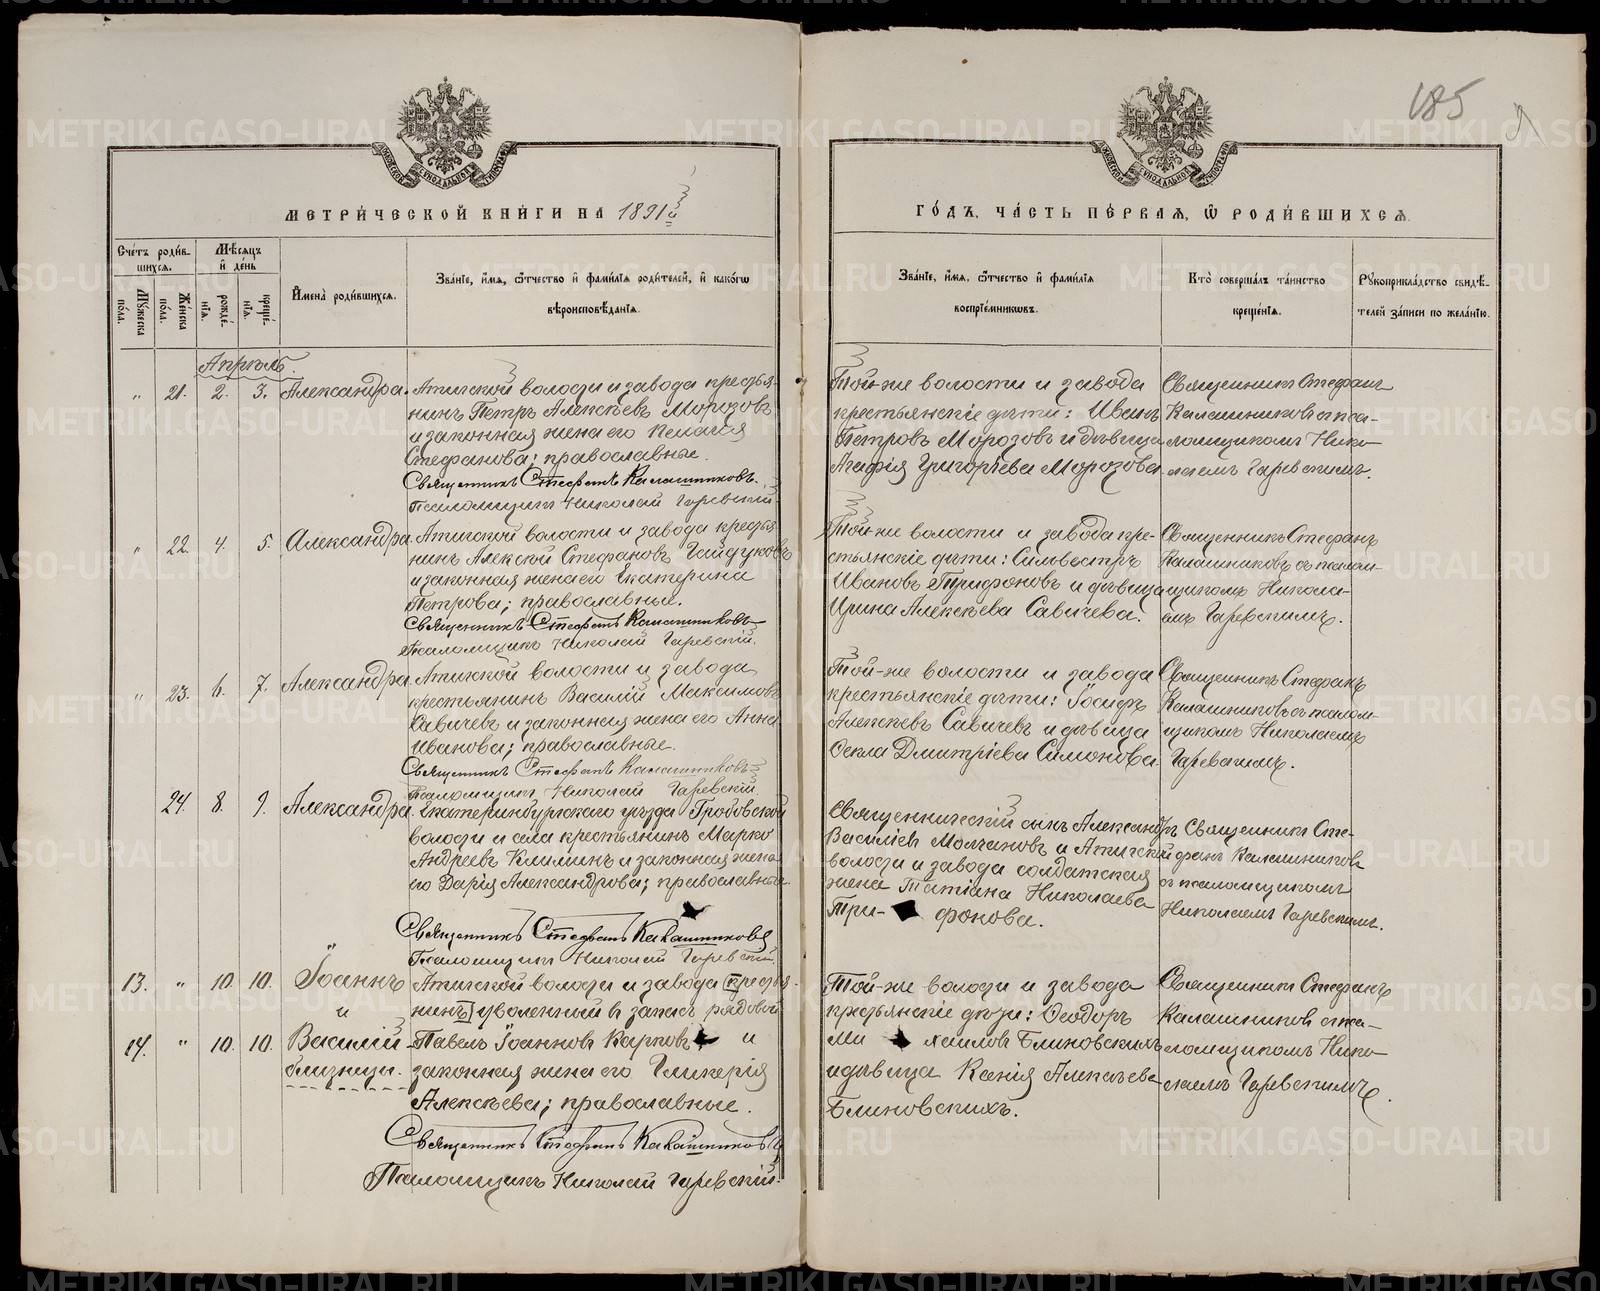 185
МЕТРИ́ЧЕСКОЙ КНИ́ГИ НА 1891й
ГО́ДЪ, ЧА́СТЬ ПЕ́РВАЯ, Ѿ РОДИ́ВШИХСЯ.
Сче́тъ роди́в-
шихся.
Му́жеска по́ла.
Же́нска по́ла.
Мѣ́сяцъ и де́нь
рожде́нія.
креще́нія.
И́мена роди́вшихся.
Зва́ніе, и́мя, ѿтчество и фами́лія роди́телей, и како́гѡ
вѣроисповѣ́данія.
Зва́ніе, и́мя, ѿтчество и фами́лія
воспріе́мникѡвъ.
Кто̀ соверша́лъ та́инство
креще́нія.
Рꙋкоприкла́дство свидѣ́-
телей за́писи по жела́нію.
Апрѣль.
„ 21. 2. 3. Александра.
Атигской волости и завода крестья-
нинъ Петръ Алексѣевъ Морозовъ
и законная жена его Пелагія
Стефанова; православные.
Священникъ Стефанъ Калашниковъ.
Псаломщикъ Николай Гаревскій.
Той-же волости и завода
крестьянскіе дѣти: Иванъ
Петровъ Морозовъ и дѣвица
Агафія Григорьева Морозова.
Священникъ Стефанъ
Калашниковъ с пса-
ломщикомъ Нико-
лаемъ Гаревскимъ.
„ 22. 4. 5. Александра
Атигской волости и завода крестья-
нинъ Алексѣй Стефановъ Гайдуковъ
и законная жена его Екатерина
Петрова; православные.
Священникъ Стефанъ Калашниковъ
Псаломщикъ Николай Гаревскій.
Той-же волости и завода кре-
стьянскіе дѣти: Сильвестръ
Ивановъ Трифоновъ и дѣвица
Ирина Алексѣева Савичева.
Священникъ Стефанъ
Калашниковъ съ псалом-
щикомъ Никола-
емъ Гаревскимъ.
„ 23. 6. 7. Александра
Атигской волости и завода
крестьянинъ Василій Максимовъ
Савичевъ и законная жена его Анна
Иванова; православные.
Священникъ Стефанъ Калашниковъ
Псаломщикъ Николай Гаревскій.
Той-же волости и завода
крестьянскіе дѣти: Іосифъ
Алексѣевъ Савичевъ и дѣвица
Ѳекла Дмитріева Симонова.
Священникъ Стефанъ
Калашниковъ съ псалом-
щикомъ Николаемъ
Гаревскимъ.
24. 8. 9. Александра
Екатеринбургскаго уѣзда Гробовской
волости и села крестьянинъ Марко
Андреевъ Климинъ и законная жена
его Дарія Александрова; православные.
Священникъ Стефанъ Калашниковъ
Псаломщикъ Николай Гаревскій.
Священническій сынъ Александръ
Василіевъ Молчановъ и Атигской
волости и завода солдатская
жена Татіана Николаева
Три- фонова.
Священникъ Сте-
фанъ Калашниковъ
съ псаломщикомъ
Николаемъ Гаревскимъ.
13. „ 10. 10. Іоаннъ
и
14. „ 10. 10. Василій-
близнецы.
Атигской волости и завода [крестья-
нинъ] уволенный в запасъ рядовой
Павелъ Іоанновъ Карповъ и
законная жена его Гликерія
Алексѣева; православные.
Священникъ Стефанъ Калашниковъ
Псаломщикъ Николай Гаревскій.
Той-же волости и завода
крестьянскіе дѣти: Ѳеодоръ
Ми хаиловъ Блиновскихъ
и дѣвица Ксенія Алексѣева
Блиновскихъ.
Священникъ Стефанъ
Калашниковъ с пса-
ломщикомъ Нико-
лаемъ Гаревскимъ.
METRIKI.GASO-URAL.RU